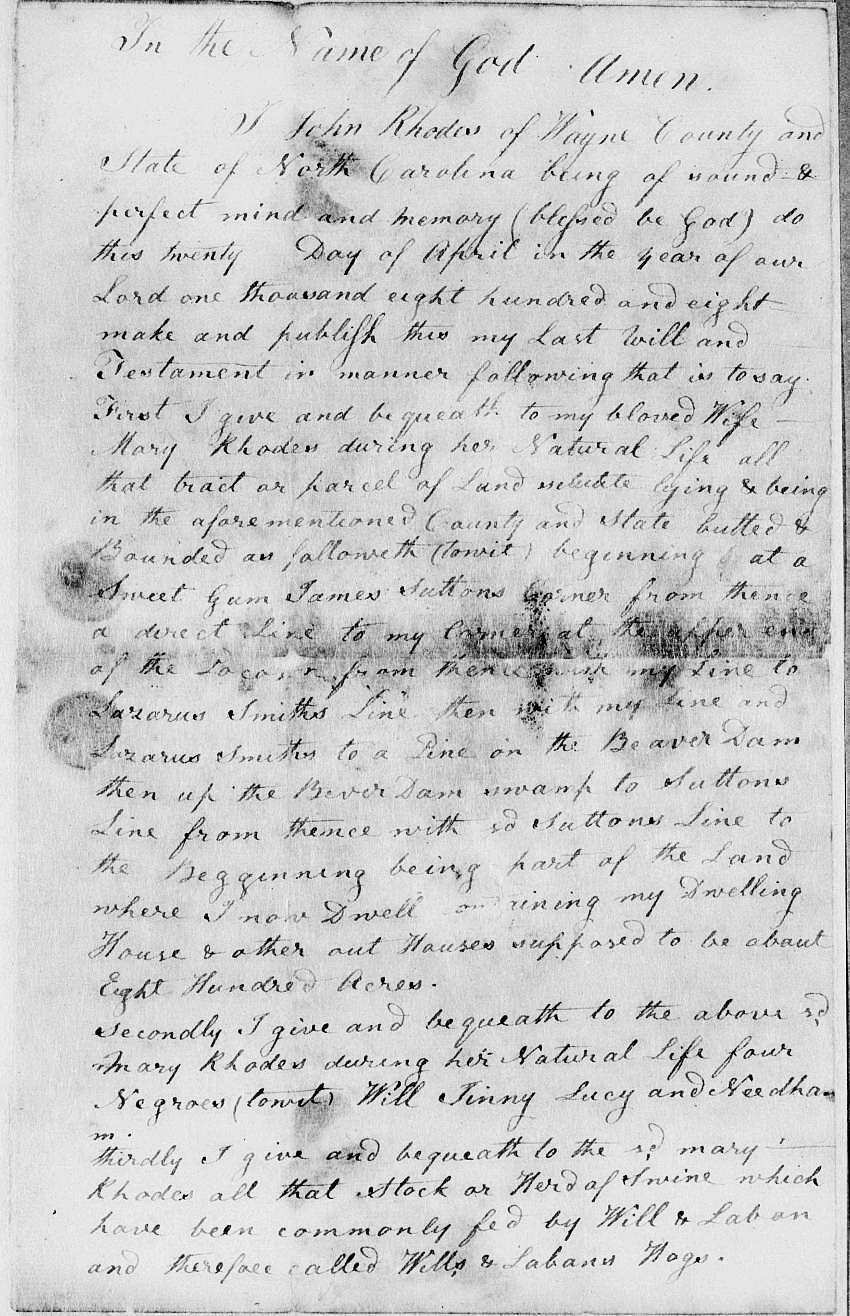 In the Name of God Amen.
I John Rhodes of Wayne County and
State of North Carolina being of sound &
perfect mind and memory (blessed be God) do
this twenty Day of April in the year of our
Lord one thousand eight hundred and eight
make and publish this my Last Will and
Testament in manner following that is to say.
First I give and bequeath to my bloved Wife
Mary Rhodes during her Natural Life all
that tract or parcel of Land setutete lying & being
in the aforementioned County and State butted &
Bounded as followeth (towit) beginning at a
Sweet Gum James Suttons Corner from thence
a direct Line to my Corner at the upper end
of the from thence with my Line to
Lazarus Smiths Line then with my Line and
Lazarus Smiths to a Pine on the Beaver Dam
then up the Bever Dam swamp to Suttons
Line from thence with sd Suttons Line to
the Begginning being part of the Land
where I now Dwell my Dwelling
House & other out Houses supposed to be about
Eight Hundred Acres.
Secondly I give and bequeath to the above sd
Mary Rhodes during her Natural Life four
Negroes (towit) Will Jinny Lucy and Needha-
m.
thirdly I give and bequeath to the sd mary
Rhodes all that Stock or Herd of Swine which
have been commonly fed by Will & Laban
and therefore called Wills & Labans Hogs.